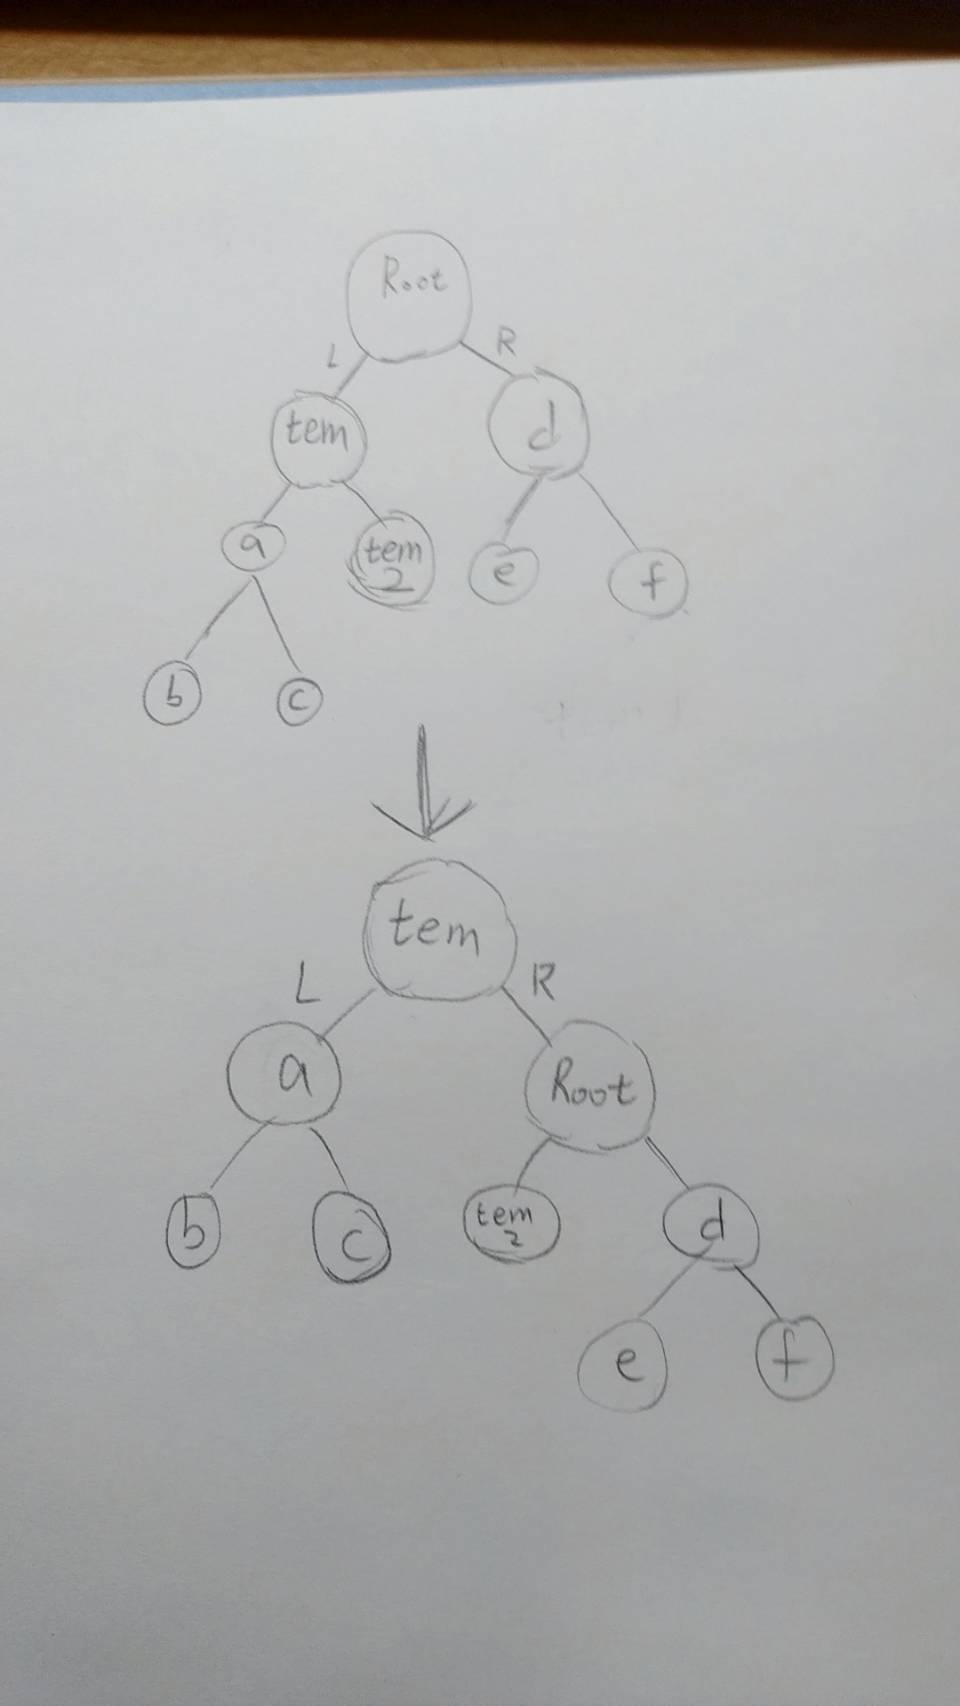 Root
L R
tem d
a tem e f
2
b c
tem
L R
a Root
b c tem d
2
e f